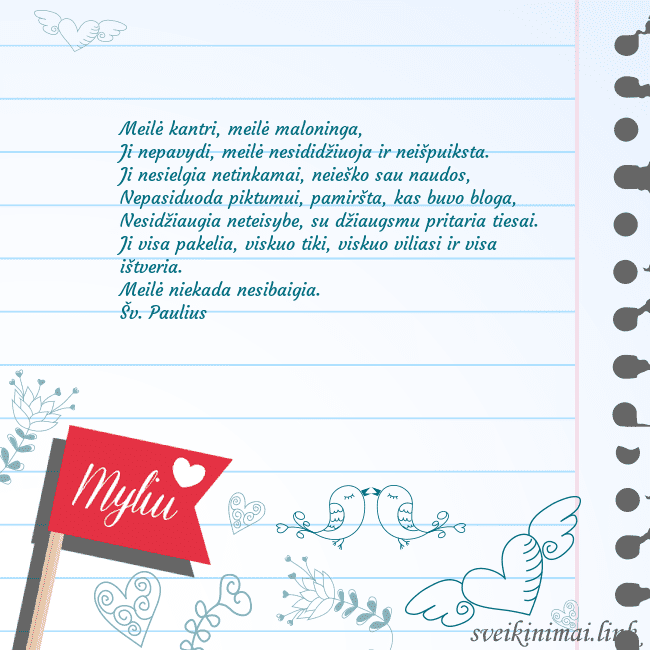 Meilė kantri, meilė maloninga,
Ji nepavydi, meilė nesididžiuoja ir neišpuiksta.
Ji nesielgia netinkamai, neieško sau naudos,
Nepasiduoda piktumui, pamiršta, kas buvo bloga,
Nesidžiaugia neteisybe, su džiaugsmu pritaria tiesai.
Ji visa pakelia, viskuo tiki, viskuo viliasi ir visa
ištveria.
Meilė niekada nesibaigia.
Šv. Paulius
Myliu
sveikinimai.link